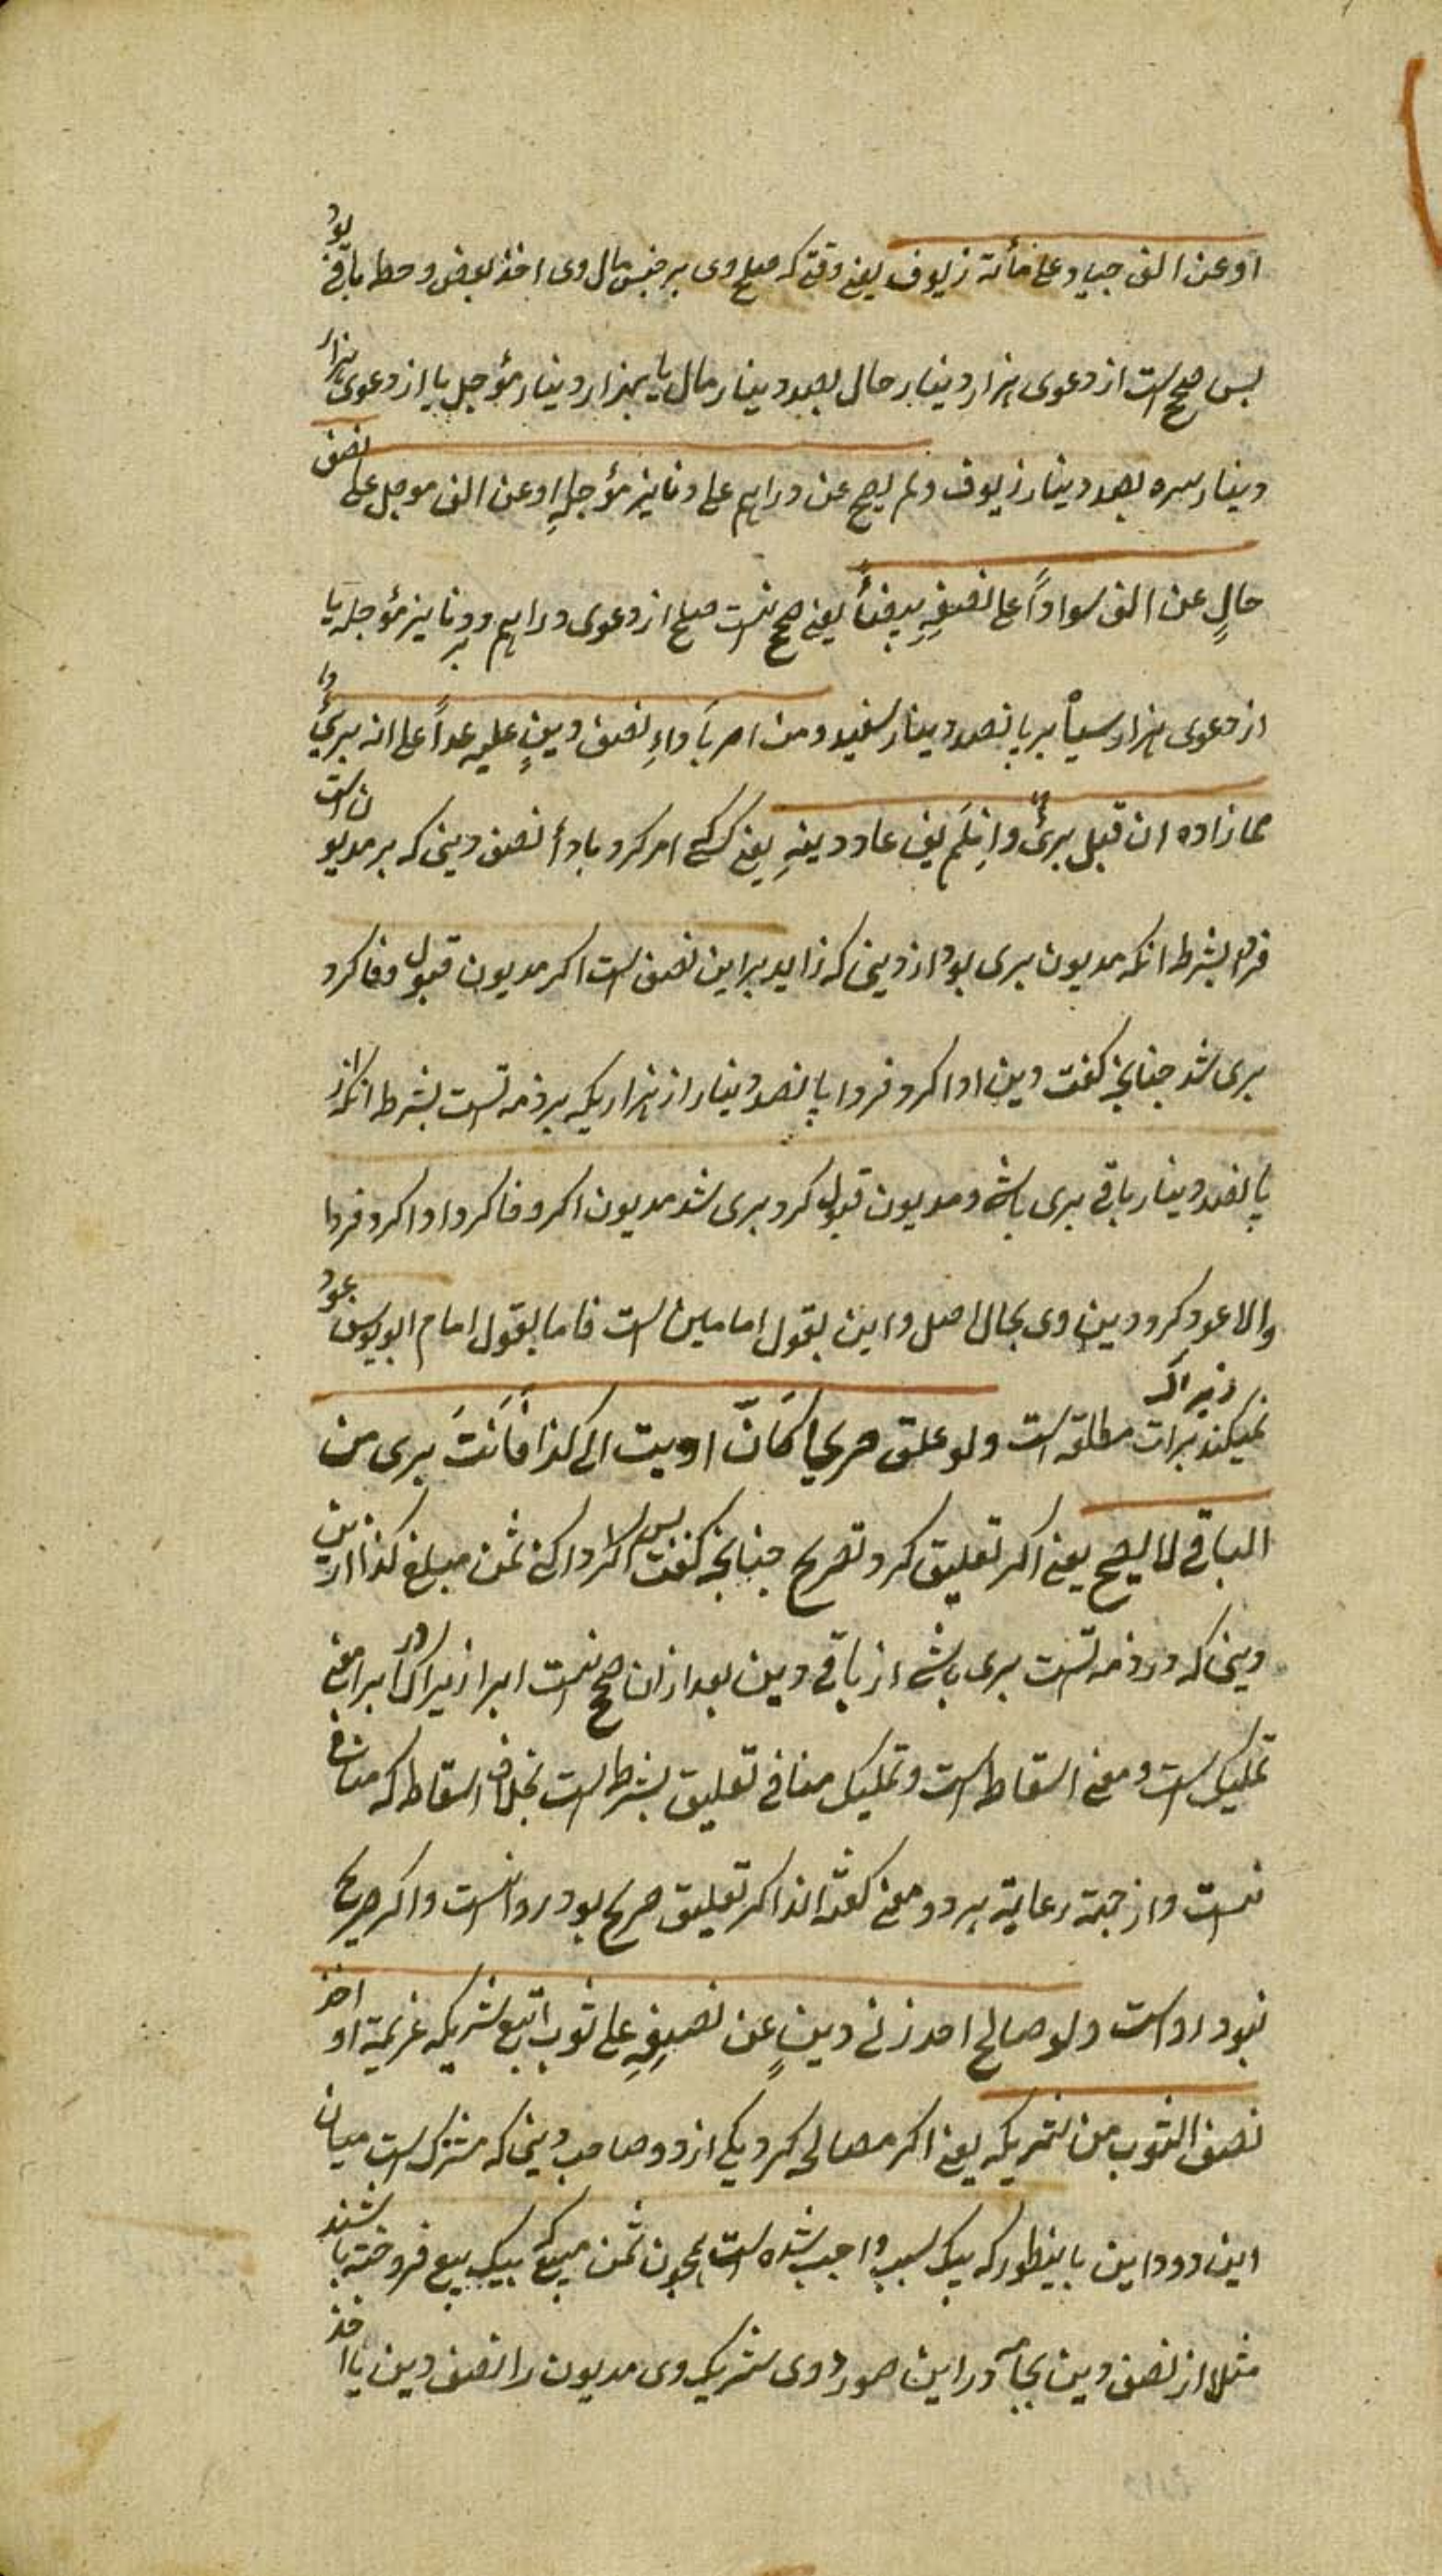 او عن الف جیاد علی مأته زیوف یعنی وقتی که صلح وی بر جنس مال وی اخذ بعض و حط باقی بود
پس صحیح است از دعوی هزار دینار حال بصد دینار حال یا بهزار دینار مؤجل یا از دعوی هزار
دینار سره بصد دینار زیوف و لم یصح عن دراهم علی دنانیر مؤجلهٍ او عن الف موجل علی نصف
حالٍ عن الف سواداً علی نصفِهِ بیضاً یعنی صحیح نیست صلح از دعوی دراهم بر دنانیر مؤجله یا
از دعوی هزار سیاْه بر پانصد دینار سفید و من امر باَداءِ نصف دینٍ علیه غداً علی انه بریٌٔ
مما زاده ان قبل بریٌٔ و اِن لَم یف عاد دینهِ یعنی کسی امر کرد باداأ نصف دینی که بر مدیون است
فردا بشرط انکه مدیون بری بود از دینی که زاید براین نصف است اکر مدیون قبول و وفا کرد
بری شد چنانچه کفت دین ادا کرد فردا پانصد دینار از هزاریکه بر ذمه تست بشرط انکه از
پانصد دینار باقی بری باشی و مدیون قبول کرد بری شد مدیون اکر وفا کرد و ادا کرد فردا
والا عود کرد دین وی بحال اصل و این بقول امامین است فاما بقول امام ابویوسف عود
نمیکند زیراکه برات مطلقه است ولو علق صریحا کَانّ ادیت الی کذا فَاَنتَ بری من
الباقی لا یصح یعنی اکر تعلیق کرد تصریح چنانچه کفت پس اکر ادا کنی بمن مبلغ کذا ازین
دینی که در ذمه تست بری باشی از باقی دین بعد ازان صحیح نیست ابرا زیراکه در ابرا معنی
تملیک است و معنی اسقاط است و تملیک منافی تعلیق بشرط است بخلاف اسقاط که منافی
نیست و از جهة رعایة هر دو معنی کفته اند اکر تعلیق صریح بود روا نیست و اکر صریح
نبود رواست ولو صالح احد زنی دینٍ عن نصیفِهِ علی ثوب اتبع شریکه غریمه او اخذ
نصف الثوب من شریکه یعنی اکر مصالحه کرد یکی از دو صاحب دینی که مشترک است میان
این دو داین باینطور که بیک سبب واجب شده است همچون ثمن مبیع که بیک بیع فروخته باشند
مثلا از نصف دین بجامه در این صورت وی شریک وی مدیون را نصف دین یا اخذ